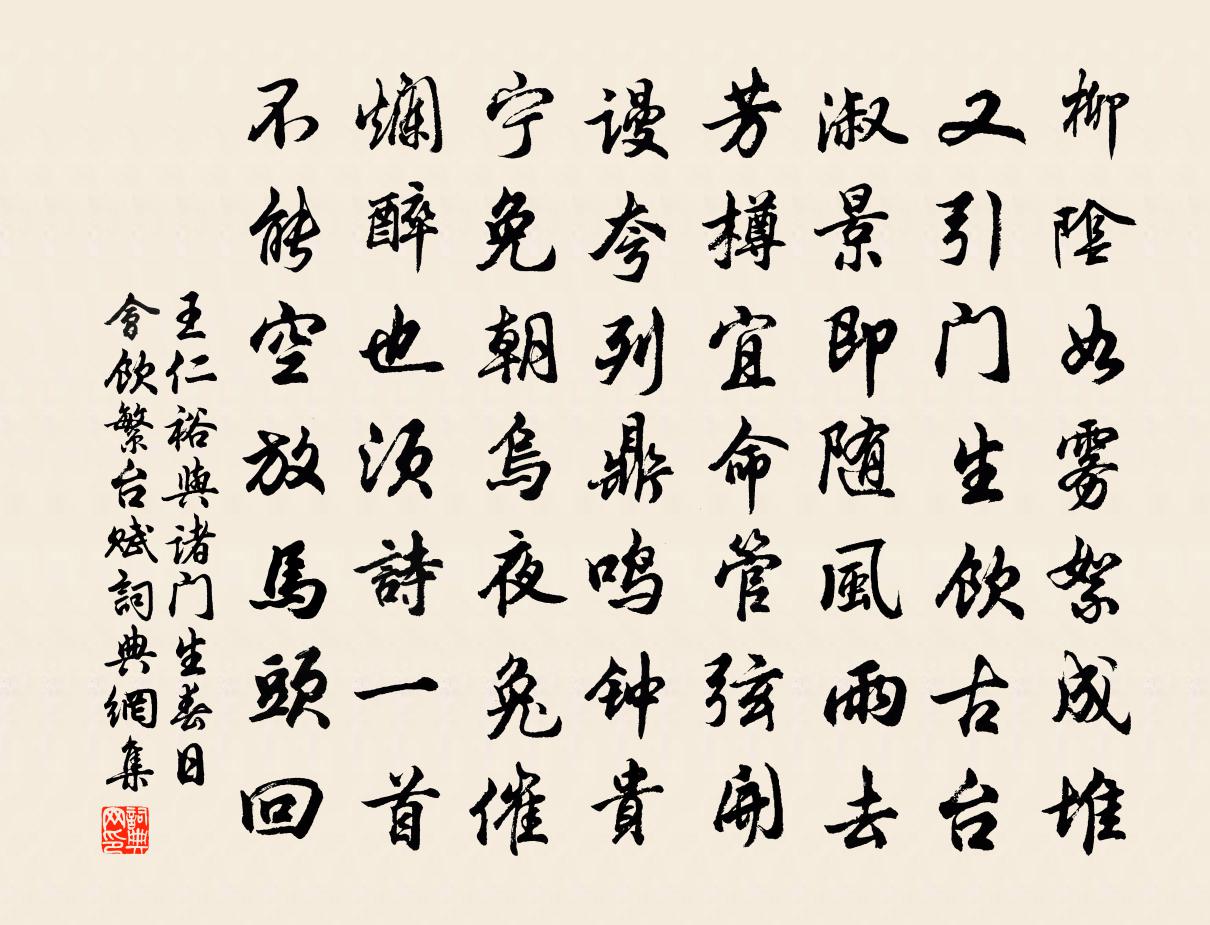 柳陰如霧絮成堆
又引门生飲古台
淑景即随風雨去
芳樽宜命管弦開
谩夸列鼎鸣钟貴
宁免朝烏夜兔催
爛醉也須詩一首
不能空放馬頭回
王仁裕與諸门生春日
會飲繁台赋詞典網集
詞典
网印